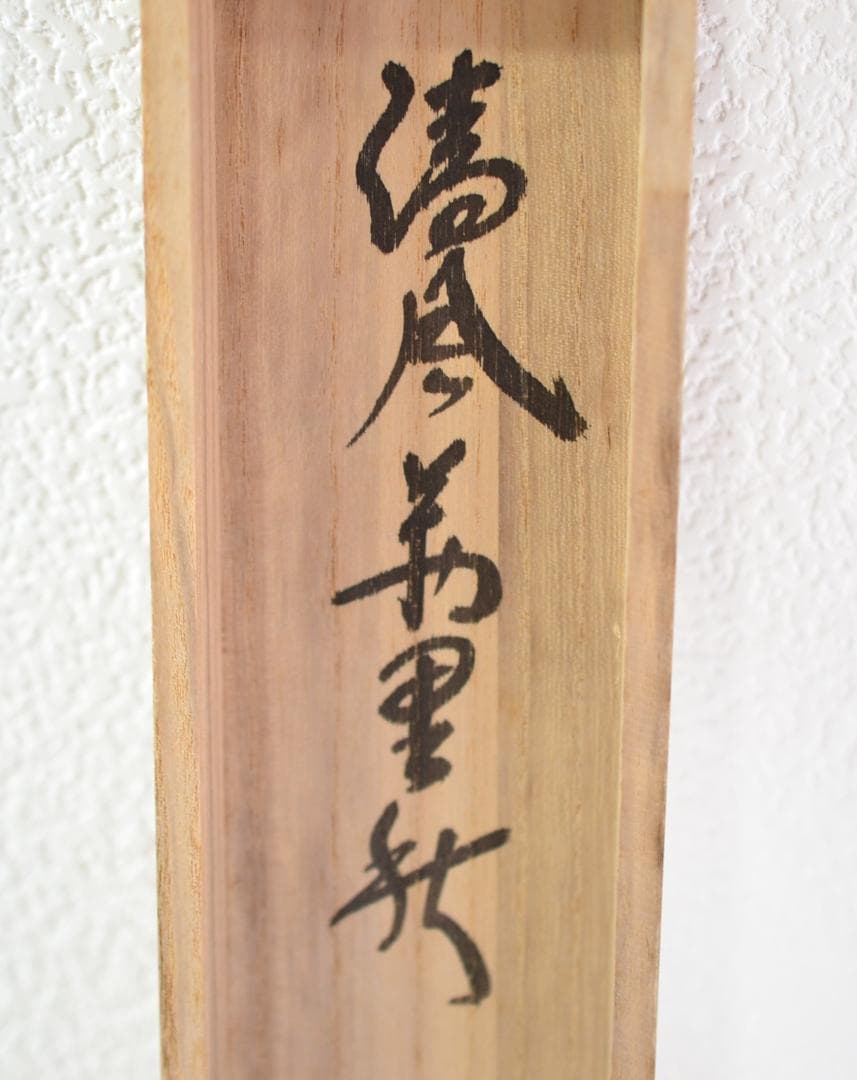 清風萬里秋